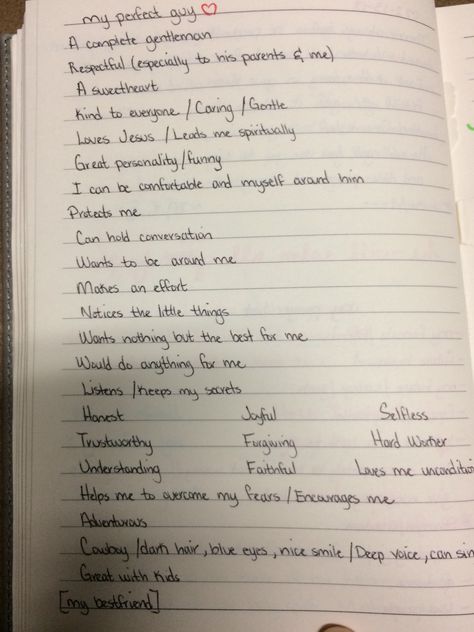 my perfect guy ♡
A complete gentleman
Respectful (especially to his parents & me)
A sweetheart
Kind to everyone / Caring / Gentle
Loves Jesus / Leads me spiritually
Great personality / funny
I can be comfortable and myself around him
Protects me
Can hold conversation
Wants to be around me
Makes an effort
Notices the little things
Wants nothing but the best for me
Would do anything for me
Listens / Keeps my secrets
Honest Joyful Selfless
Trustworthy Forgiving Hard Worker
Understanding Faithful Loves me
Helps me to overcome my fears / Encourages me
Adventurous
Cowboy / dark hair, blue eyes, nice smile / Deep voice, can
Great with kids
[my bestfriend]